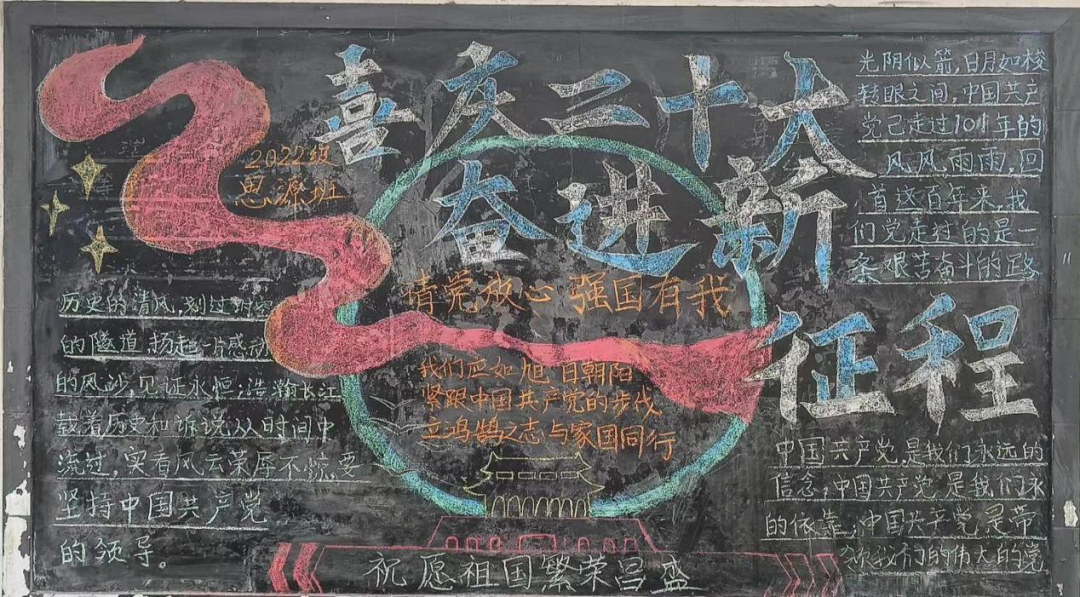 喜庆二十大
奋进新
征程
2022级
思源班
请党放心 强国有我
我们应如旭日朝阳
紧跟中国共产党的步伐
立鸿鹄之志与家国同行
历史的清风,划过时空
的隧道,扬起一片感动
的风沙,见证永恒;浩瀚长江
载着历史和诉说从时间中
流过,实看风云荣辱不惊,要
坚持中国共产党
的领导。
光阴似箭,日月如梭
转眼之间,中国共产
党已走过101年的
风风雨雨,回
首这百年来,我
们党走过的是一
条艰苦奋斗的正路
中国共产党,是我们永远的
信念;中国共产党,是我们永
的依靠;中国共产党,是带
领我们的伟大的党
祝愿祖国繁荣昌盛